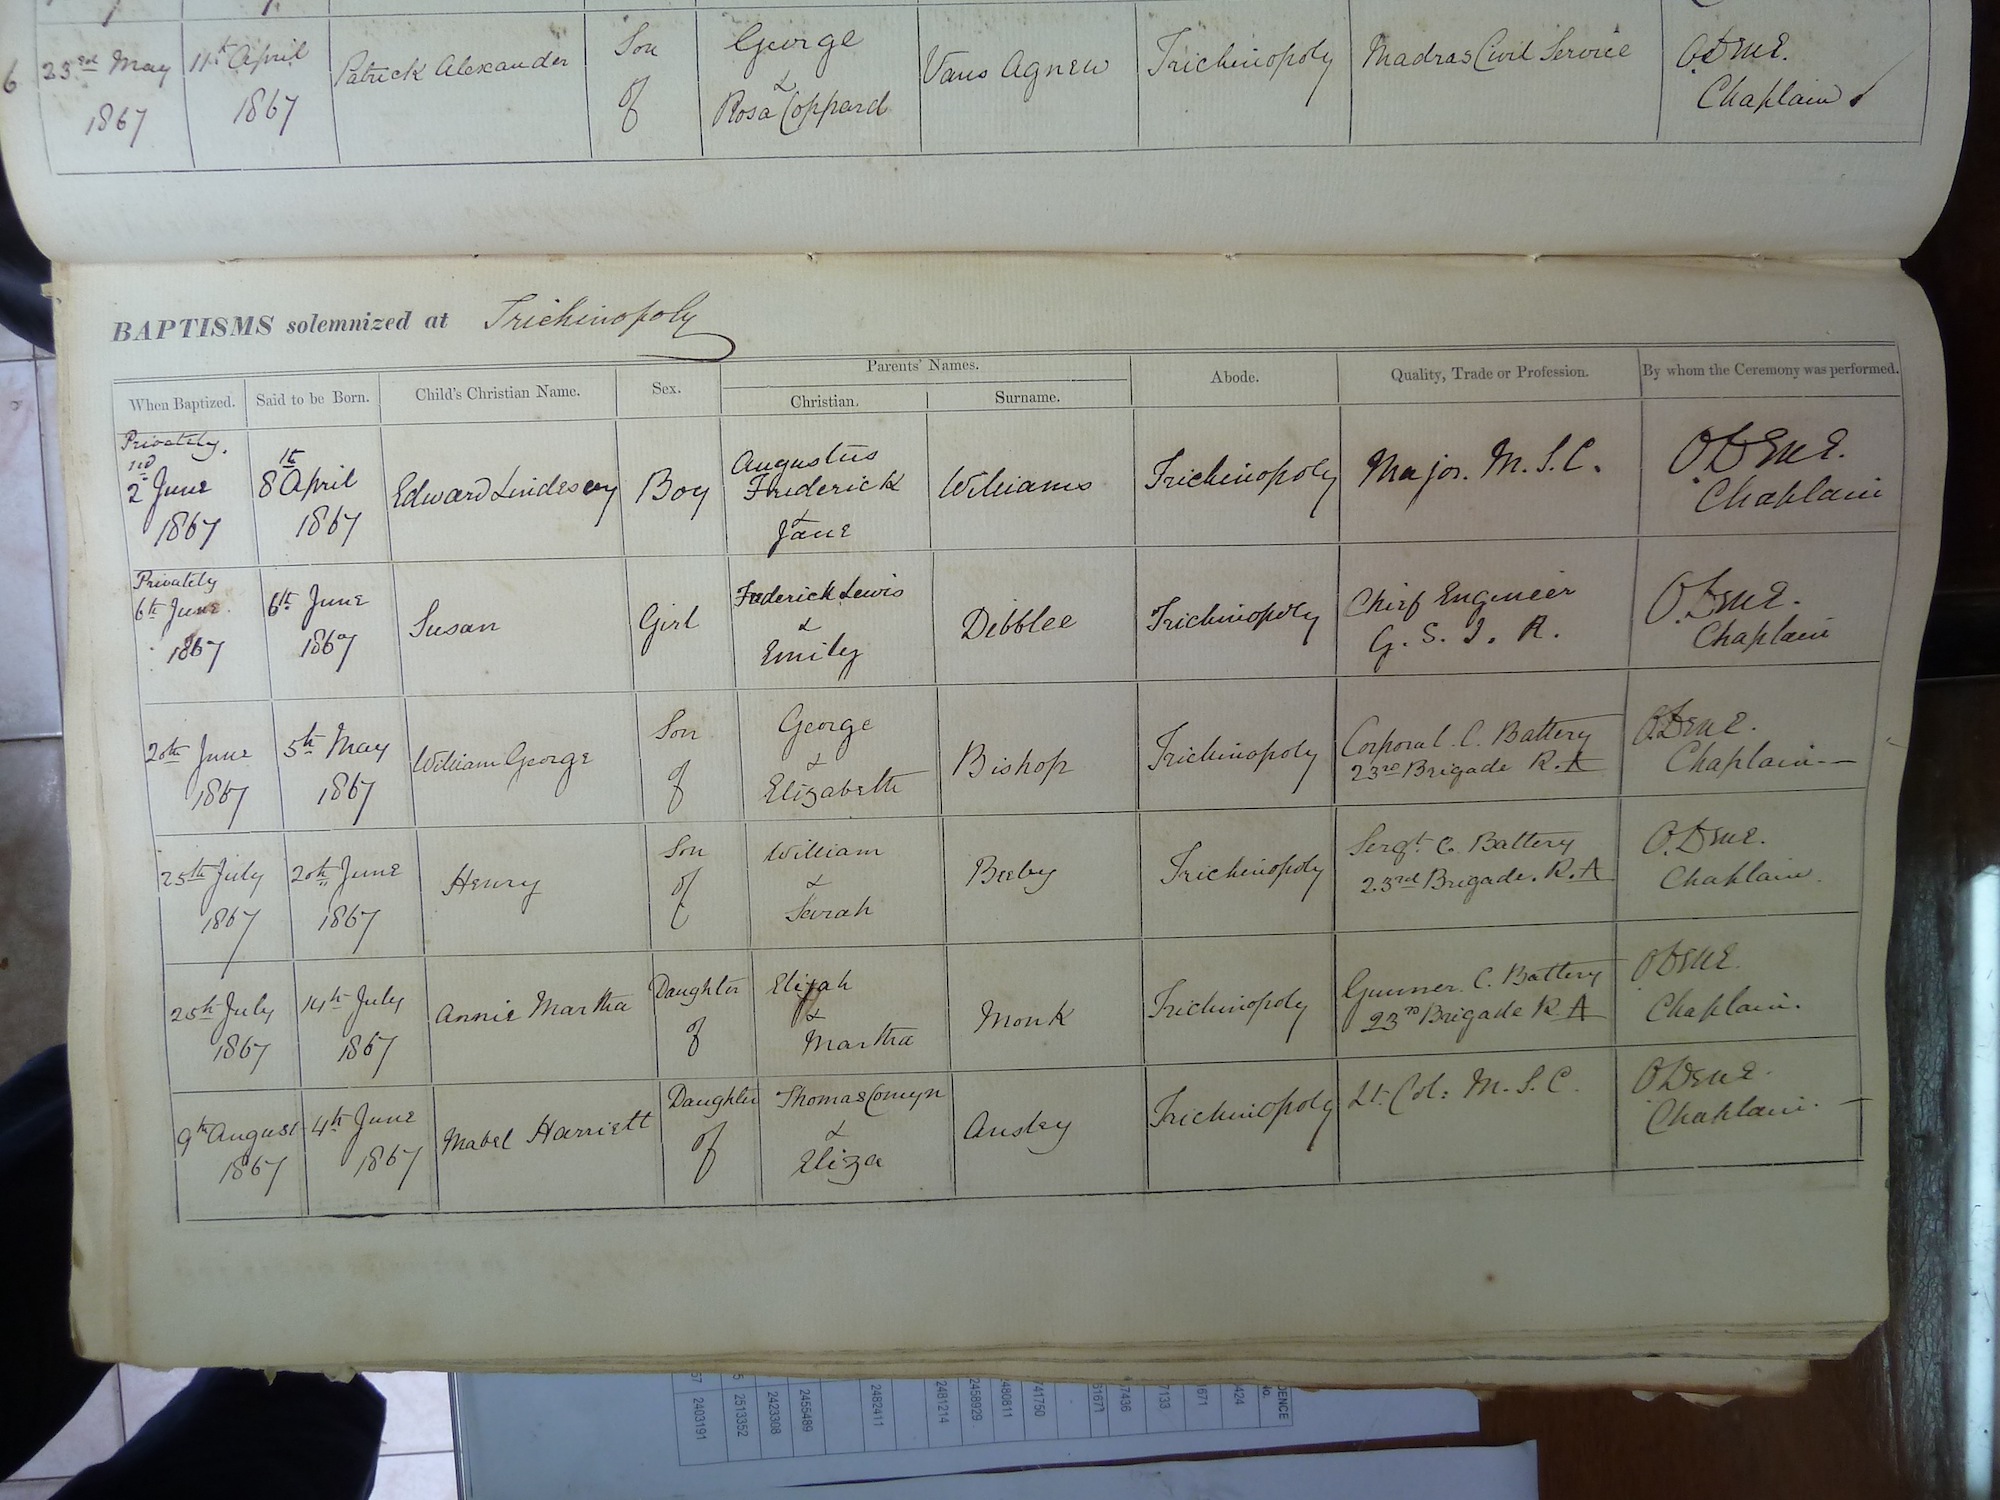 6 23rd May 1867 11th April 1867 Patrick Alexander Son of George & Rosa Coppard Vans Agnew Trichinopoly Madras Civil Service Chaplain
BAPTISMS solemnized at Trichinopoly
When Baptized. Said to be Born. Child's Christian Name. Sex. Parents' Names. Christian. Surname. Abode. Quality, Trade or Profession. By whom the Ceremony was performed.
Privately. 2nd June 1867 8th April 1867 Edward Lindesay Boy Augustus Frederick & Jane Williams Trichinopoly Major. M. S. C. Chaplain
Privately 6th June 1867 6th June 1867 Susan Girl Frederick Lewis & Emily Dibblee Trichinopoly Chief Engineer G. S. I. R. Chaplain
20th June 1867 5th May 1867 William George Son of George & Elizabeth Bishop Trichinopoly Corporal. C. Battery 23rd Brigade R. A Chaplain
25th July 1867 20th June 1867 Henry Son of William & Sarah Beeby Trichinopoly Sergt. C. Battery 23rd Brigade. R. A Chaplain.
25th July 1867 14th July 1867 Annie Martha Daughter of Elijah & Martha Monk Trichinopoly Gunner. C. Battery 23rd Brigade R. A Chaplain.
9th August 1867 4th June 1867 Mabel Harriett Daughter of Thomas Comyn & Eliza Trichinopoly Lt. Col: M. S. C. Chaplain.
2403191
2513352
2423308
2455489
2482411
2481214
2458929
480811
41750
51671
7436
7133
671
424
DENCE No.